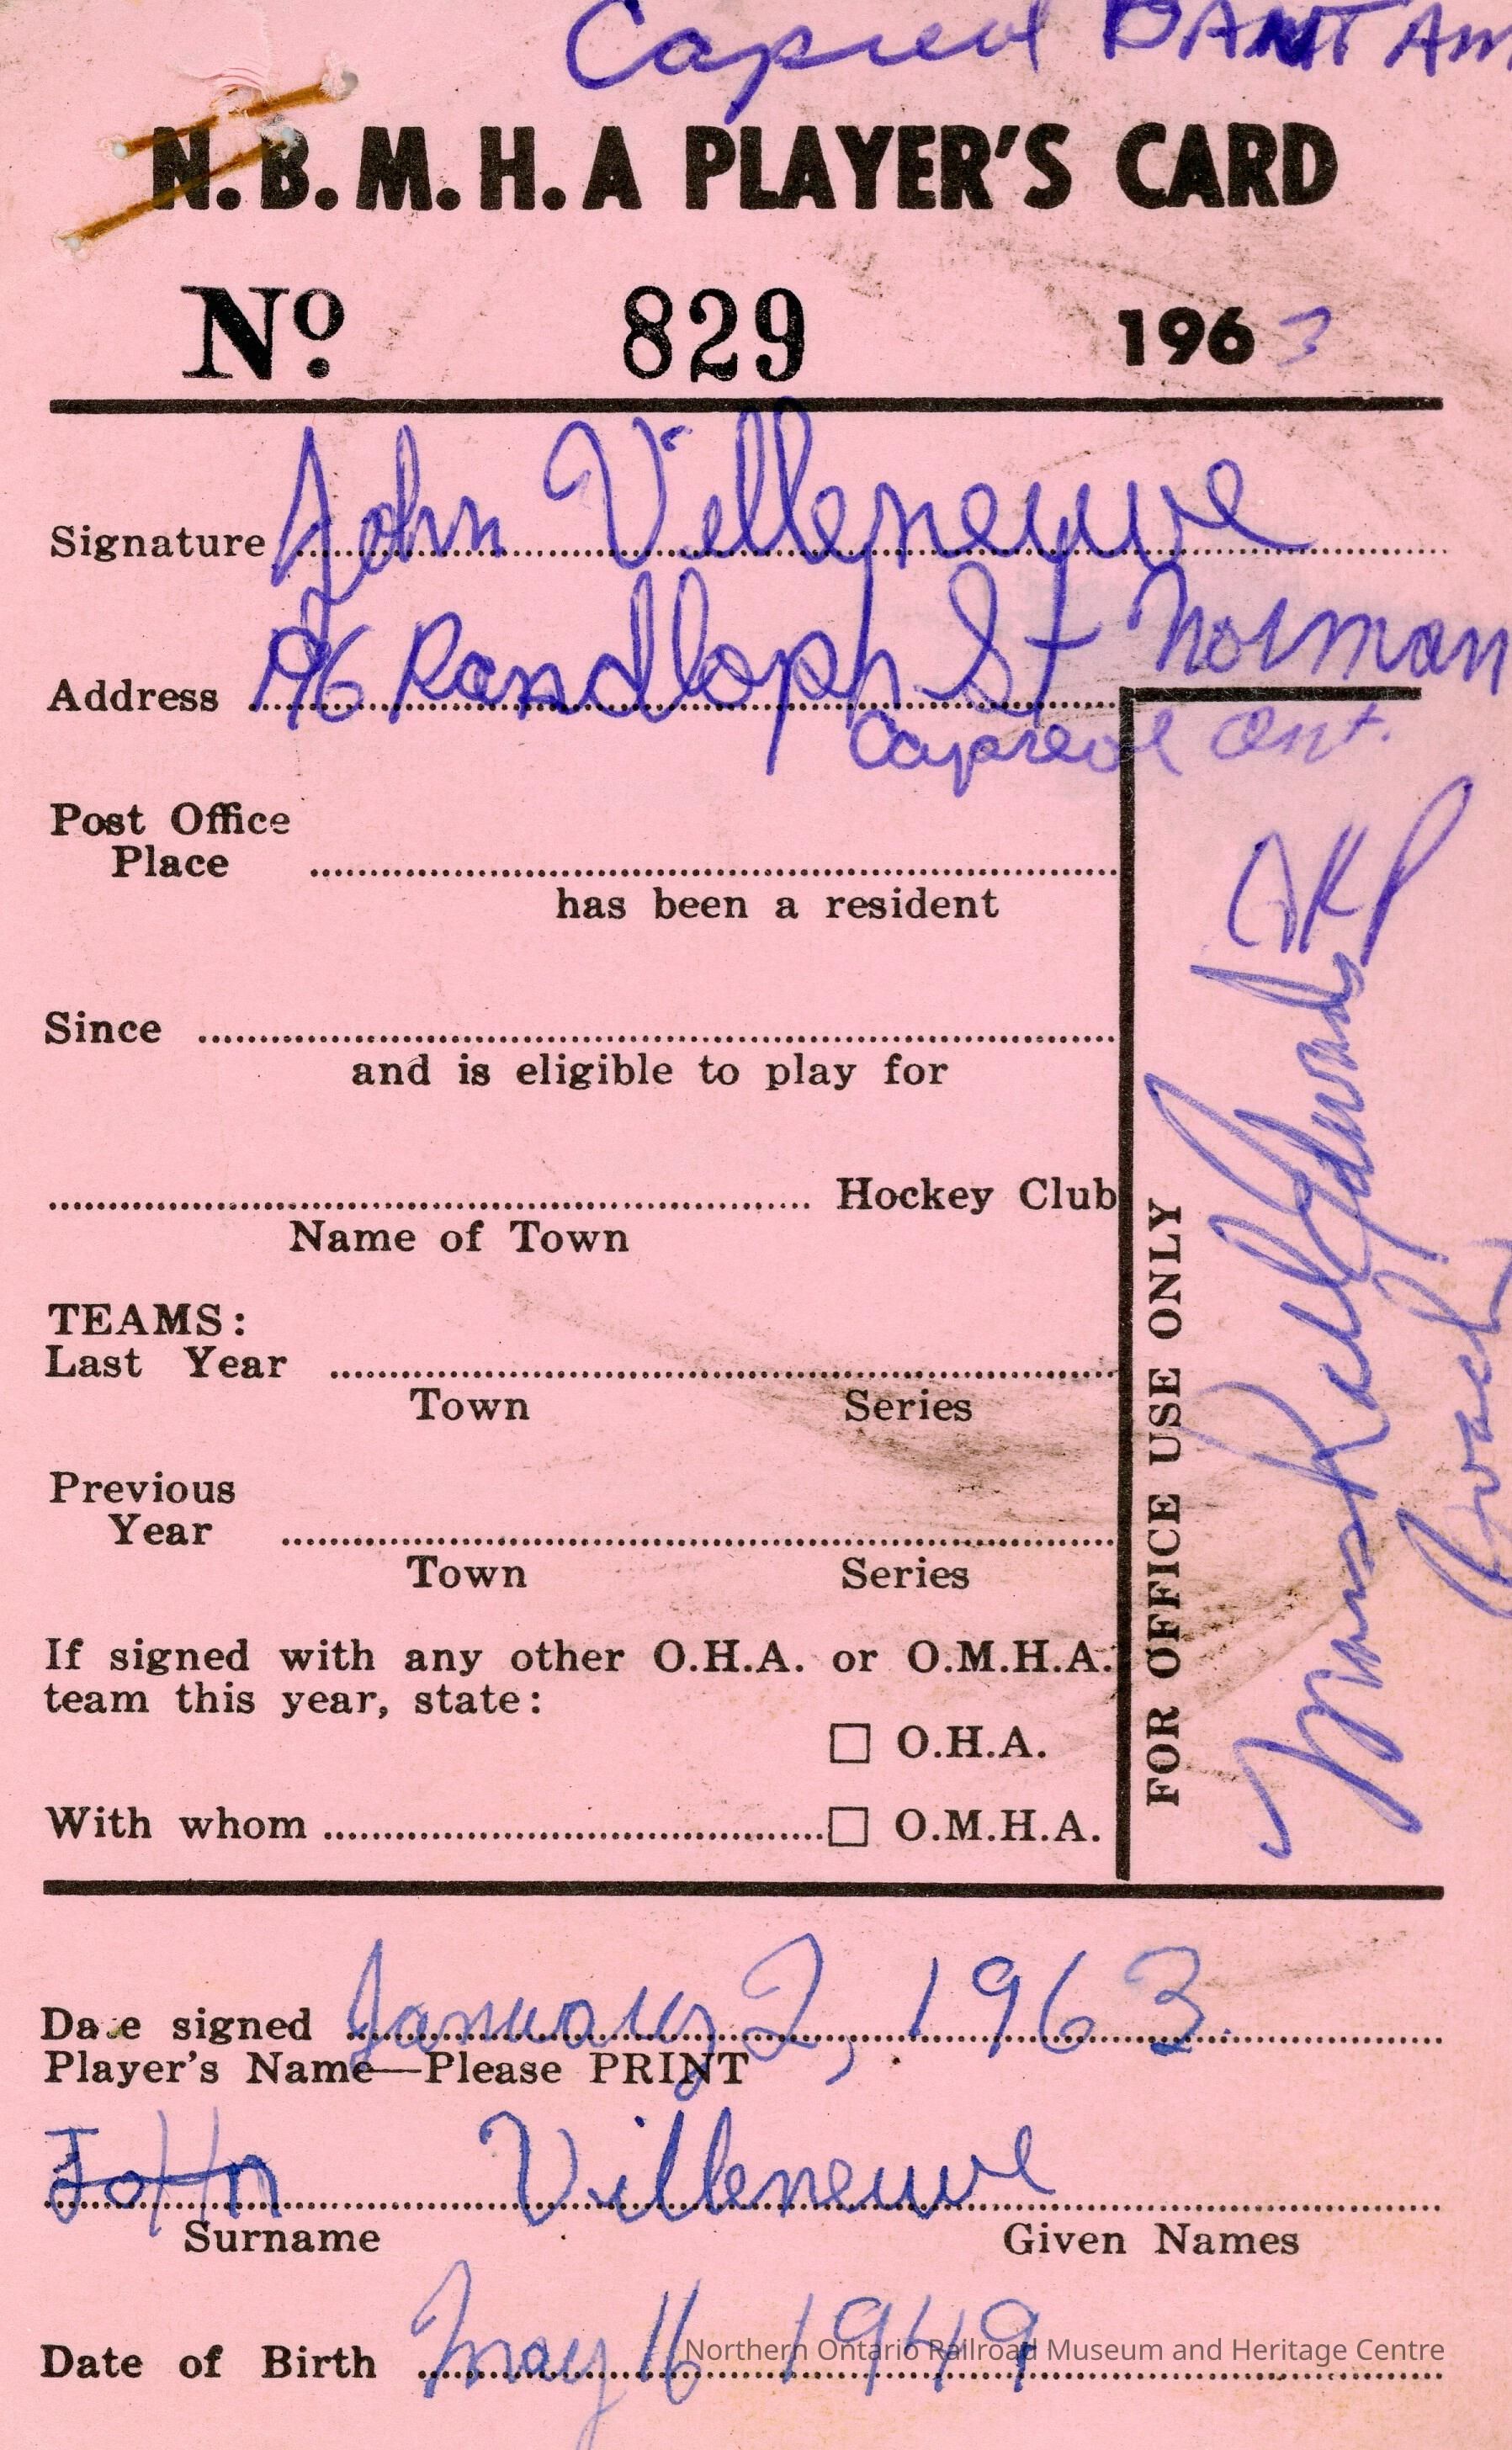 Capreol BANTAM
N.B.M.H.A PLAYER'S CARD
No. 829 1963
Signature John Villeneuve
Address 196 Randloph St Norman
Capreol Ont.
Post Office
Place
has been a resident
Since
and is eligible to play for
Hockey Club
Name of Town
TEAMS:
Last Year
Town Series
Previous
Year
Town Series
If signed with any other O.H.A. or O.M.H.A.
team this year, state:
☐ O.H.A.
With whom ☐ O.M.H.A.
FOR OFFICE USE ONLY
Date signed January 2, 1963.
Player's Name—Please PRINT
JoHn Villeneuve
Surname Given Names
Date of Birth May 16 1949
Northern Ontario Railroad Museum and Heritage Centre